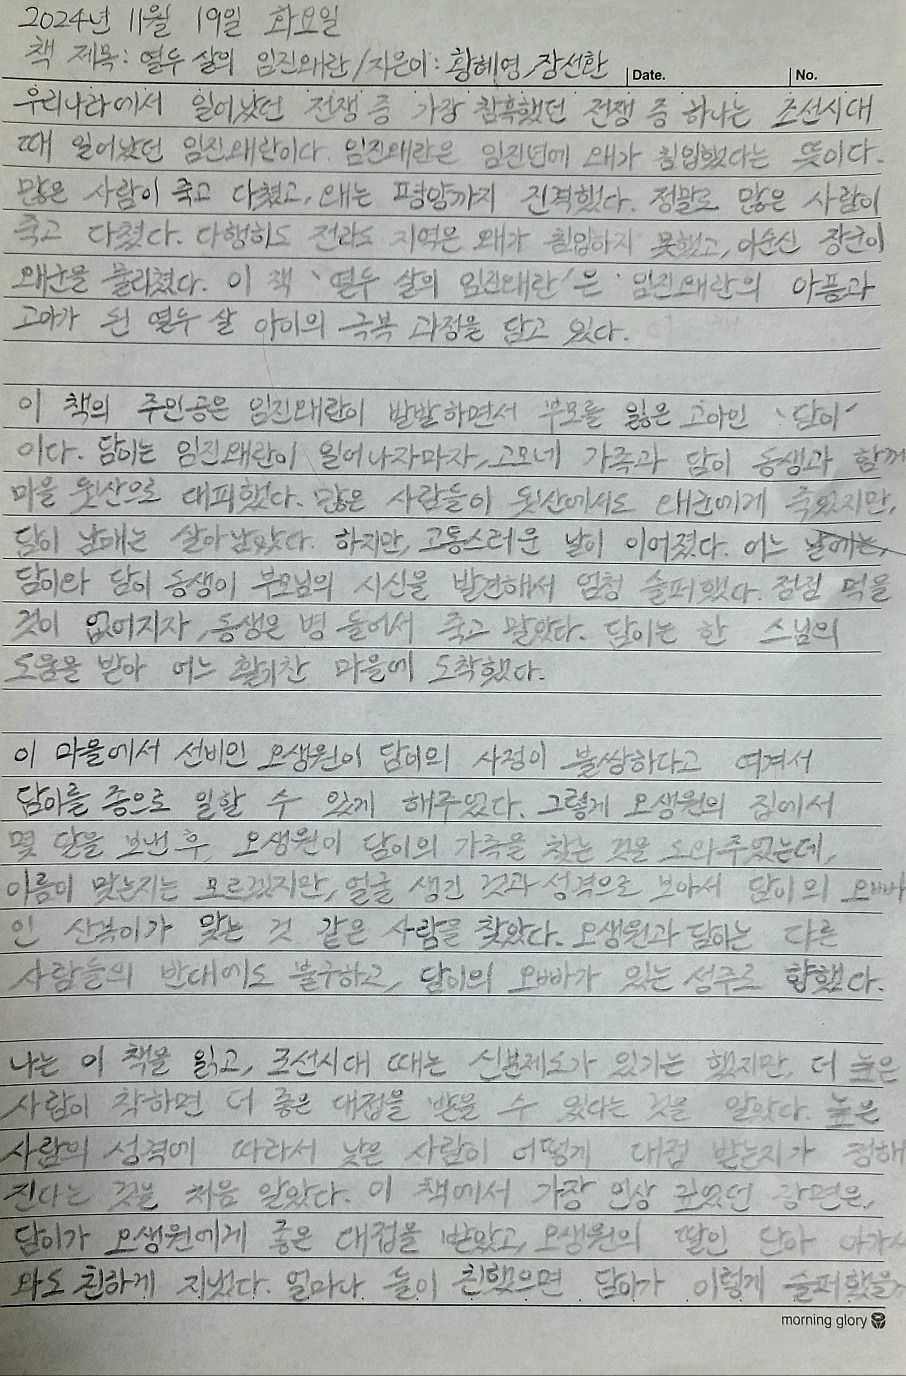 2024년 11월 19일 화요일
책 제목: 열두 살의 임진왜란/지은이: 황혜영, 장선환
Date. No.
우리나라에서 일어났던 전쟁 중 가장 참혹했던 전쟁 중 하나는 조선시대
때 일어났던 임진왜란이다. 임진왜란은 임진년에 왜가 침입했다는 뜻이다.
많은 사람이 죽고 다쳤고, 왜는 평양까지 진격했다. 정말로 많은 사람이
죽고 다쳤다. 다행히도 전라도 지역은 왜가 침입하지 못했고, 이순신 장군이
왜군을 물리쳤다. 이 책 '열두 살의 임진왜란'은 임진왜란의 아픔과
고아가 된 열두 살 아이의 극복 과정을 담고 있다.
이 책의 주인공은 임진왜란이 발발하면서 부모를 잃은 고아인 '담이'
이다. 담이는 임진왜란이 일어나자마자, 고모네 가족과 담이 동생과 함께
마을 뒷산으로 대피했다. 많은 사람들이 뒷산에서도 왜군에게 죽었지만,
담이 남매는 살아남았다. 하지만, 고통스러운 날이 이어졌다. 어느 날에는,
담이와 담이 동생이 부모님의 시신을 발견해서 엄청 슬퍼했다. 점점 먹을
것이 없어지자, 동생은 병 들어서 죽고 말았다. 담이는 한 스님의
도움을 받아 어느 활기찬 마을에 도착했다.
이 마을에서 선비인 오생원이 담이의 사정이 불쌍하다고 여겨서
담이를 종으로 일할 수 있게 해주었다. 그렇게 오생원의 집에서
몇 달을 보낸 후, 오생원이 담이의 가족을 찾는 것을 도와주었는데,
이름이 맞는지는 모르겠지만, 얼굴 생긴 것과 성격으로 보아서 담이의 오빠
인 산복이가 맞는 것 같은 사람을 찾았다. 오생원과 담이는 다른
사람들의 반대에도 불구하고, 담이의 오빠가 있는 성주로 향했다.
나는 이 책을 읽고, 조선시대 때는 신분제도가 있기는 했지만, 더 높은
사람이 착하면 더 좋은 대접을 받을 수 있다는 것을 알았다. 높은
사람의 성격에 따라서 낮은 사람이 어떻게 대접 받는지가 정해
진다는 것을 처음 알았다. 이 책에서 가장 인상 깊었던 장면은,
담이가 오생원에게 좋은 대접을 받았고, 오생원의 딸인 단아 아가씨
와도 친하게 지냈다. 얼마나 둘이 친했으면 담이가 이렇게 슬퍼했을까
morning glory